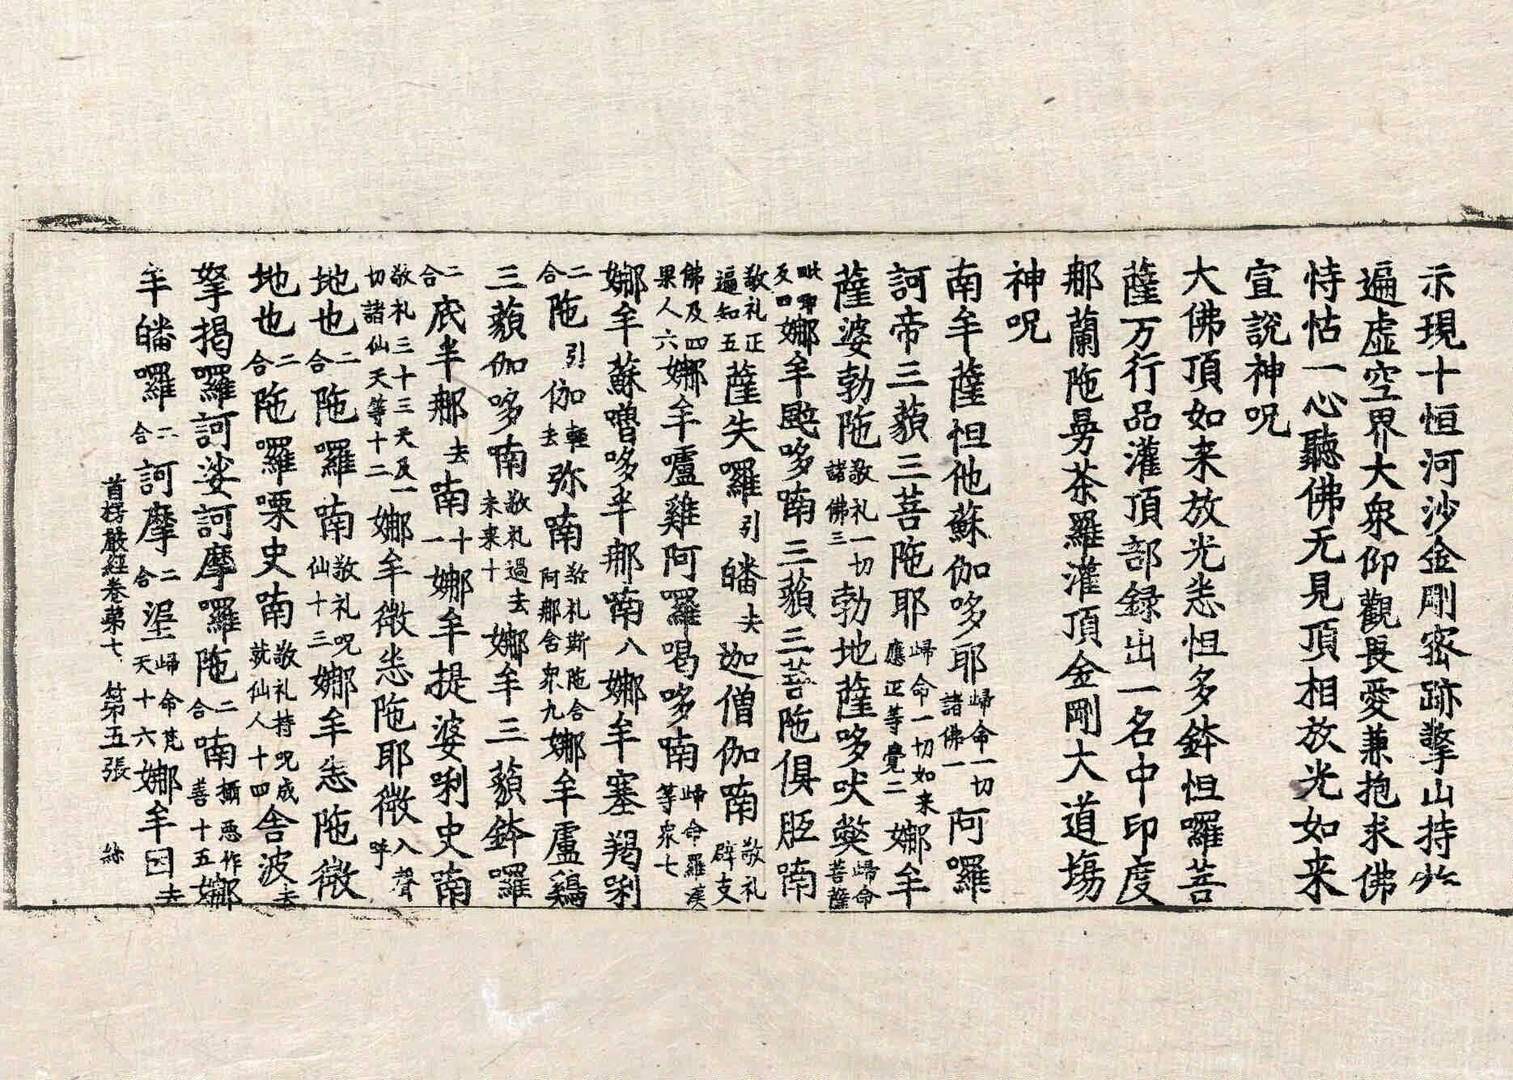 示現十恒河沙金剛密跡擎山持杵
遍虛空界大衆仰觀畏愛兼抱求佛
恃怙一心聽佛无見頂相放光如来
宣說神呪
大佛頂如来放光悉怛多鉢怛囉菩
薩万行品灌頂部録出一名中印度
那蘭陁曼茶羅灌頂金剛大道塲
神呪
南牟薩怛他蘇伽哆耶歸命一切諸佛一阿囉
訶帝三藐三菩陁耶歸命一切如来應正等覺二娜牟
薩婆勃陁敬礼一切諸佛三勃地薩哆吠弊歸命菩薩
毗耶反四娜牟颬哆喃三藐三菩陁俱胝喃
敬礼正遍知五薩失囉引皤去迦僧伽喃敬礼辟支
佛及四果人六娜牟嚧雞阿囉喝哆喃歸命羅漢等衆七
娜牟蘇嚕哆半那喃八娜牟塞羯唎
二合陁引伽輕去弥喃敬礼斯陁含阿那含衆九娜牟盧鷄
三藐伽哆喃敬礼過去未来十娜牟三藐鉢囉
二合底半那去喃十一娜牟提婆唎史喃
敬礼三十三天及一切諸仙天等十二娜牟微悉陁耶微入聲呼
地也二合陁囉喃敬礼呪仙十三娜牟悉陁微
地也二合陁囉栗史喃敬礼持呪成就仙人十四舎波去
拏揭囉訶娑訶摩囉陁二合喃攝惡作善十五娜
牟皤囉二合訶摩二合埿歸命梵天十六娜牟因去
首楞嚴經卷苐七　苐五張　絲